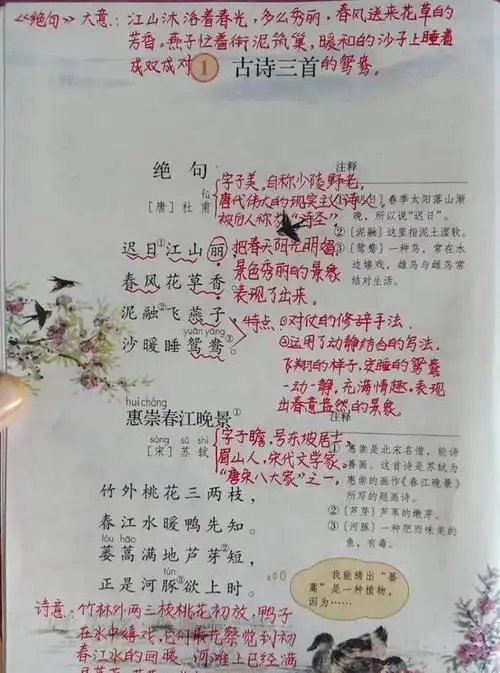 《绝句》大意：江山沐浴着春光，多么秀丽，春风送来花草的
芳香。燕子忙着衔泥筑巢，暖和的沙子上睡着
成双成对的鸳鸯。
1 古诗三首
绝句
[唐] 杜甫
fǔ
字子美，自称少陵野老，
唐代伟大的现实主义诗人，
被后人称为“诗圣”。
迟日①江山丽，
春风花草香。
泥融②飞燕子，
yuān yāng
沙暖睡鸳鸯③。
把春天阳光明媚，
景色秀丽的景象
表现了出来。
特点：①对仗的修辞手法。
②运用了动静结合的写法。
飞翔的燕子，安睡的鸳鸯
一动一静，充满情趣。表现
出春意盎然的景象。
注释
①[迟日] 春季太阳落山渐
晚，所以说“迟日”。
②[泥融] 这里指泥土湿软。
③[鸳鸯] 一种鸟，常在水
边嬉戏，雄鸟与雌鸟常
结对生活。
huì chóng
惠崇春江晚景①
sòng sū shì
[宋] 苏轼
字子瞻，号东坡居士，
眉山人，宋代文学家，
“唐宋八大家”之一。
竹外桃花三两枝，
春江水暖鸭先知。
lóu hāo
蒌蒿满地芦芽②短，
tún
正是河豚③欲上时。
注释
① 惠崇是北宋名僧，能诗
善画。这首诗是苏轼为
惠崇的画作《春江晚景》
所写的题画诗。
②[芦芽] 芦苇的嫩芽。
③[河豚] 一种肥而味美的
鱼，有毒。
我能猜出“蒌
蒿”是一种植物，
因为……
诗意：竹林外两三枝桃花初放，鸭子
在水中嬉戏，它们最先察觉到初
春江水的回暖。河滩上已经满